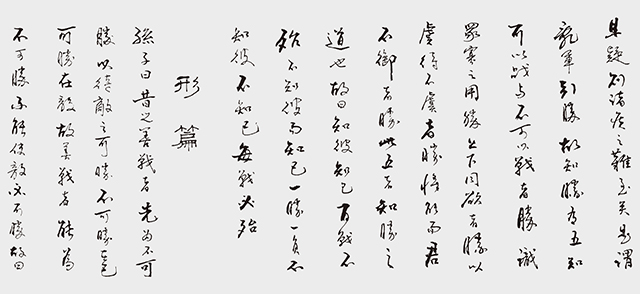 且疑則諸侯之難至矣是謂
亂軍引勝故知勝有五知
可以戰与不可以戰者勝識
眾寡之用勝上下同欲者勝以
虞待不虞者勝將能而君
不御者勝此五者知勝之
道也故曰知彼知己百戰不
殆不知彼而知己一勝一負不
知彼不知己每戰必殆
形篇
孫子曰昔之善戰者先為不可
勝以待敵之可勝不可勝在己
可勝在敵故善戰者能為
不可勝不能使敵必可勝故曰